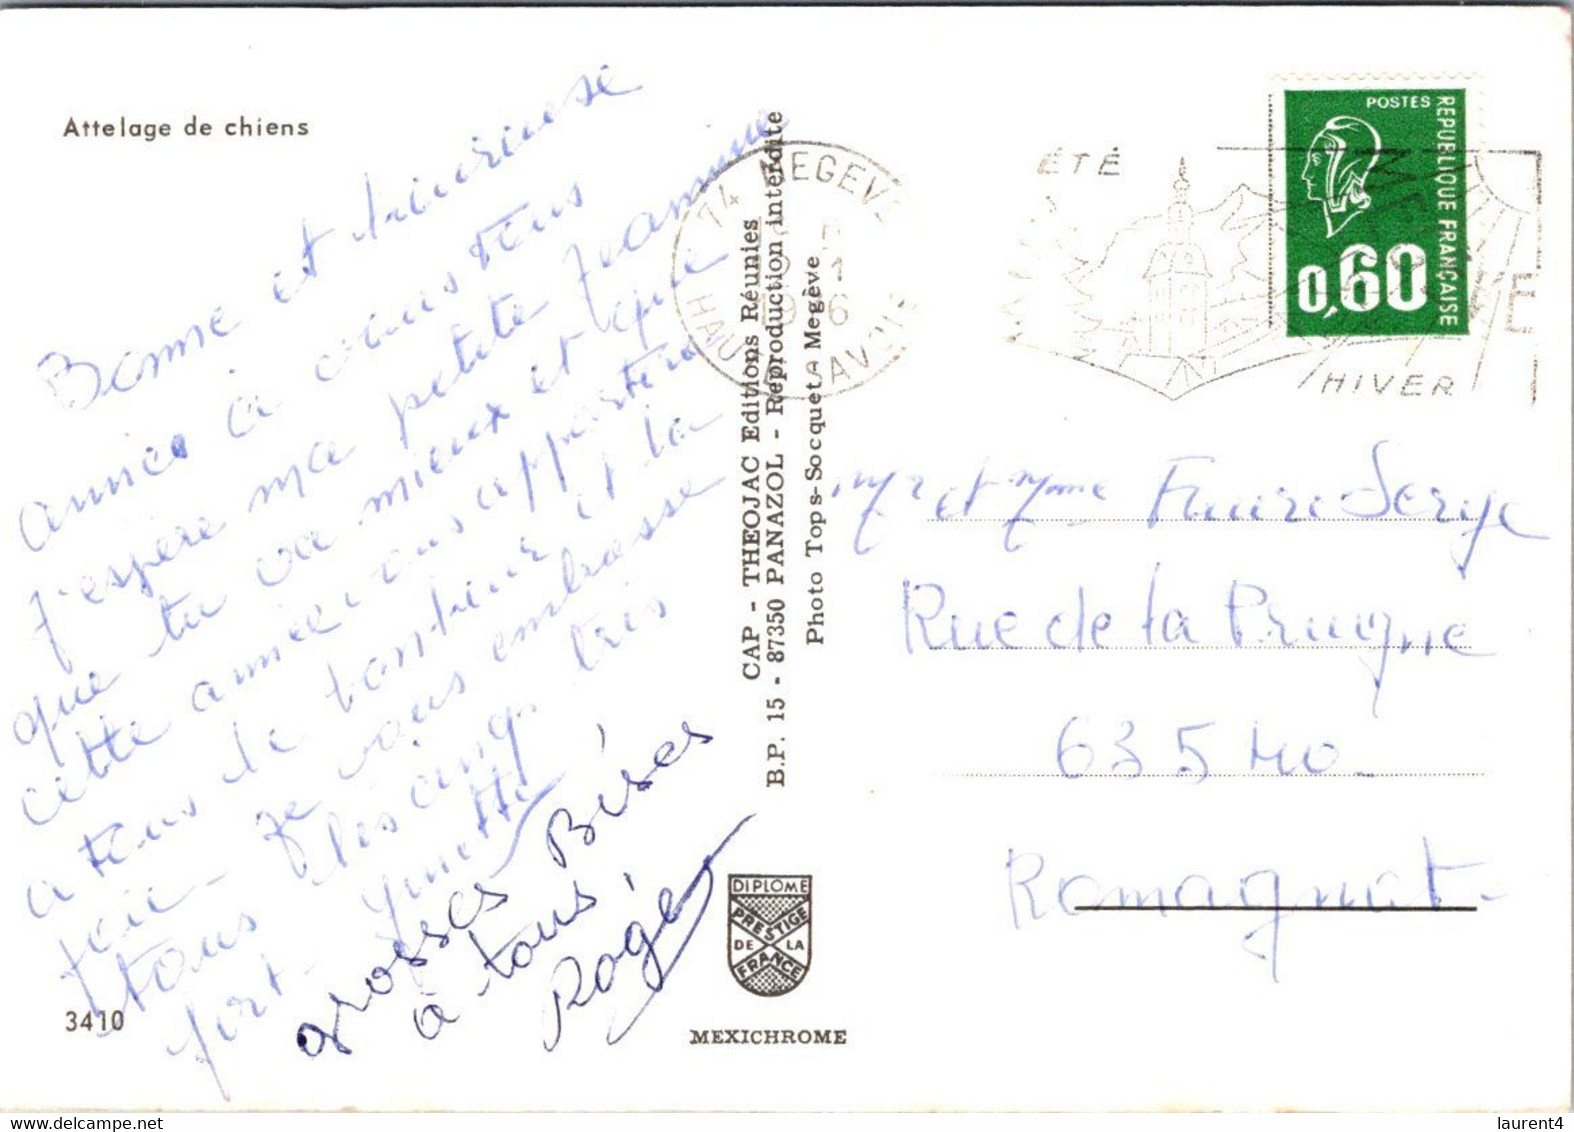 Attelage de chiens
Bonne et heureuse
année à vous tous
J'espère ma petite Jeannine
que tu va mieux et que
cette année vous apportera
a tous le bonheur et la
joie - Je vous embrasse
tous les cinq très
fort - Ginette
grosses Bises
à tous,
Roger
3410
CAP - THEOJAC Editions Réunies
B.P. 15 - 87350 PANAZOL - Reproduction interdite
Photo Tops-Socquet - Megève
DIPLOME
PRESTIGE
DE LA
FRANCE
MEXICHROME
74 MEGEVE
HAUTE SAVOIE
ÉTÉ
MEGEVE
HIVER
POSTES
REPUBLIQUE FRANÇAISE
0,60
Mr et Mme Faure Serge
Rue de la Prugne
63540
Romagnat -
laurent4
delcampe.net